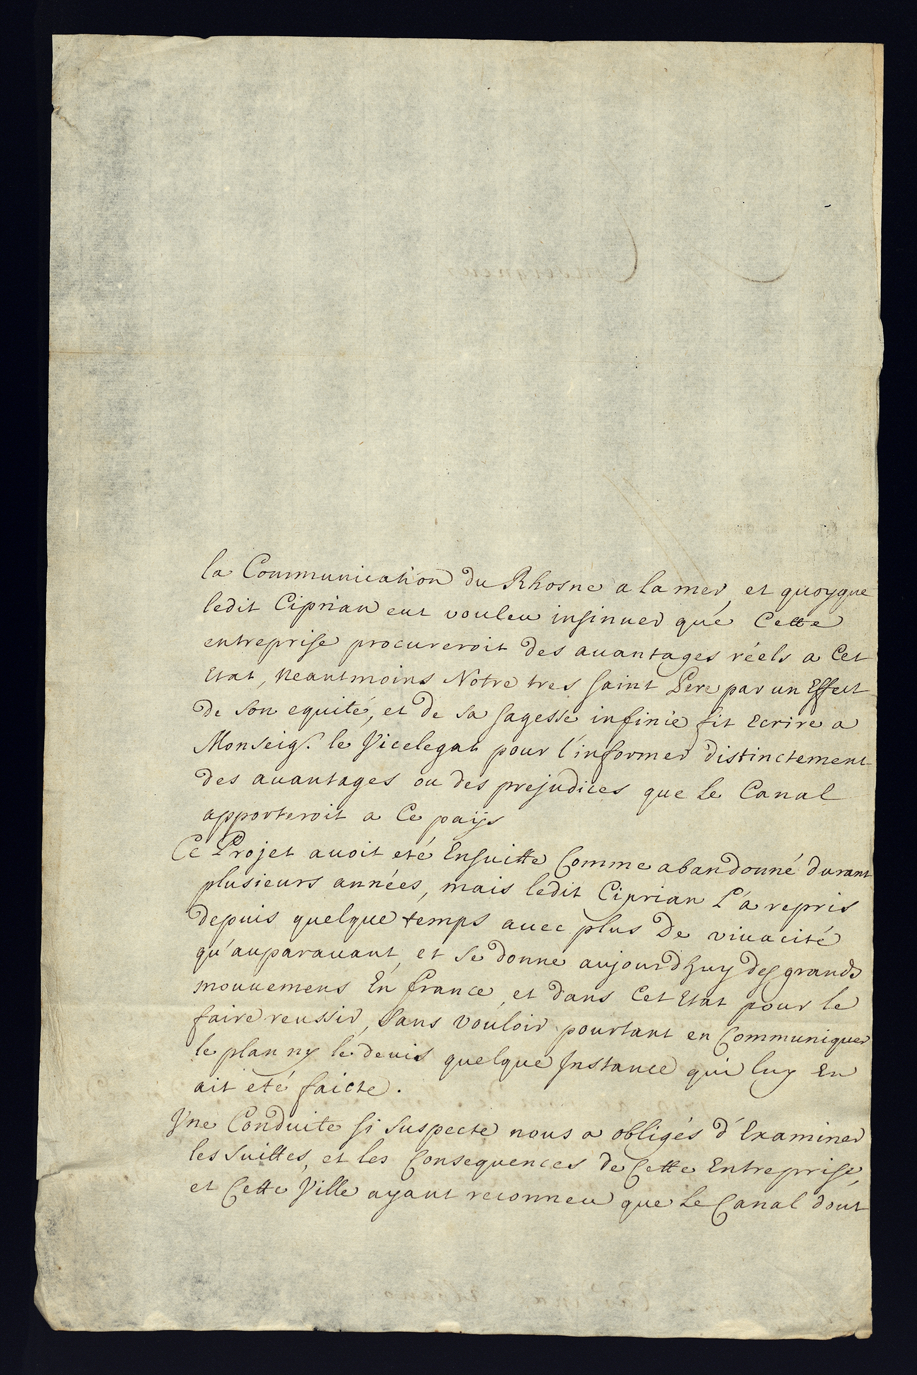 la Communication du Rhosne a la mer, et quoyque
ledit Ciprian eut vouleu insinuer qué Cette
entreprise procureroit des auantages réels a Cet
Etat, neantmoins Notre tres saint Pere par un Effect
de son equité, et de sa sagesse infinie fit Ecrire a
Monseigr. le Vicelegat pour l'informer distinctement
des auantages ou des prejudices que le Canal
apporteroit a Ce païjs
Ce Projet auoit eté Ensuitte Comme abandonné durant
plusieurs années, mais ledit Ciprian L'a repris
depuis quelque temps auec plus De viuacité
qu'auparauant, et se donne aujourdhuy des grands
mouuemens En france, et dans Cet Etat pour le
faire reussir, sans vouloir pourtant en Communiquer
le plan ny le devis quelque Instance qui luy En
ait eté faicte.
Vne Conduite si suspecte nous a obligés d'Examiner
les suittes, et les Consequences de Cette Entreprise,
et Cette Ville ayant reconneu que le Canal dont